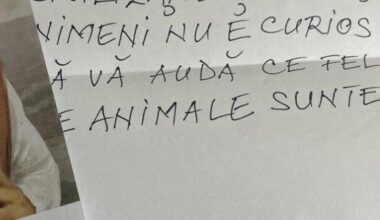 NIMENI NU E CURIOS
Ă VĂ AUDĂ CE FEL
E ANIMALE SUNTE